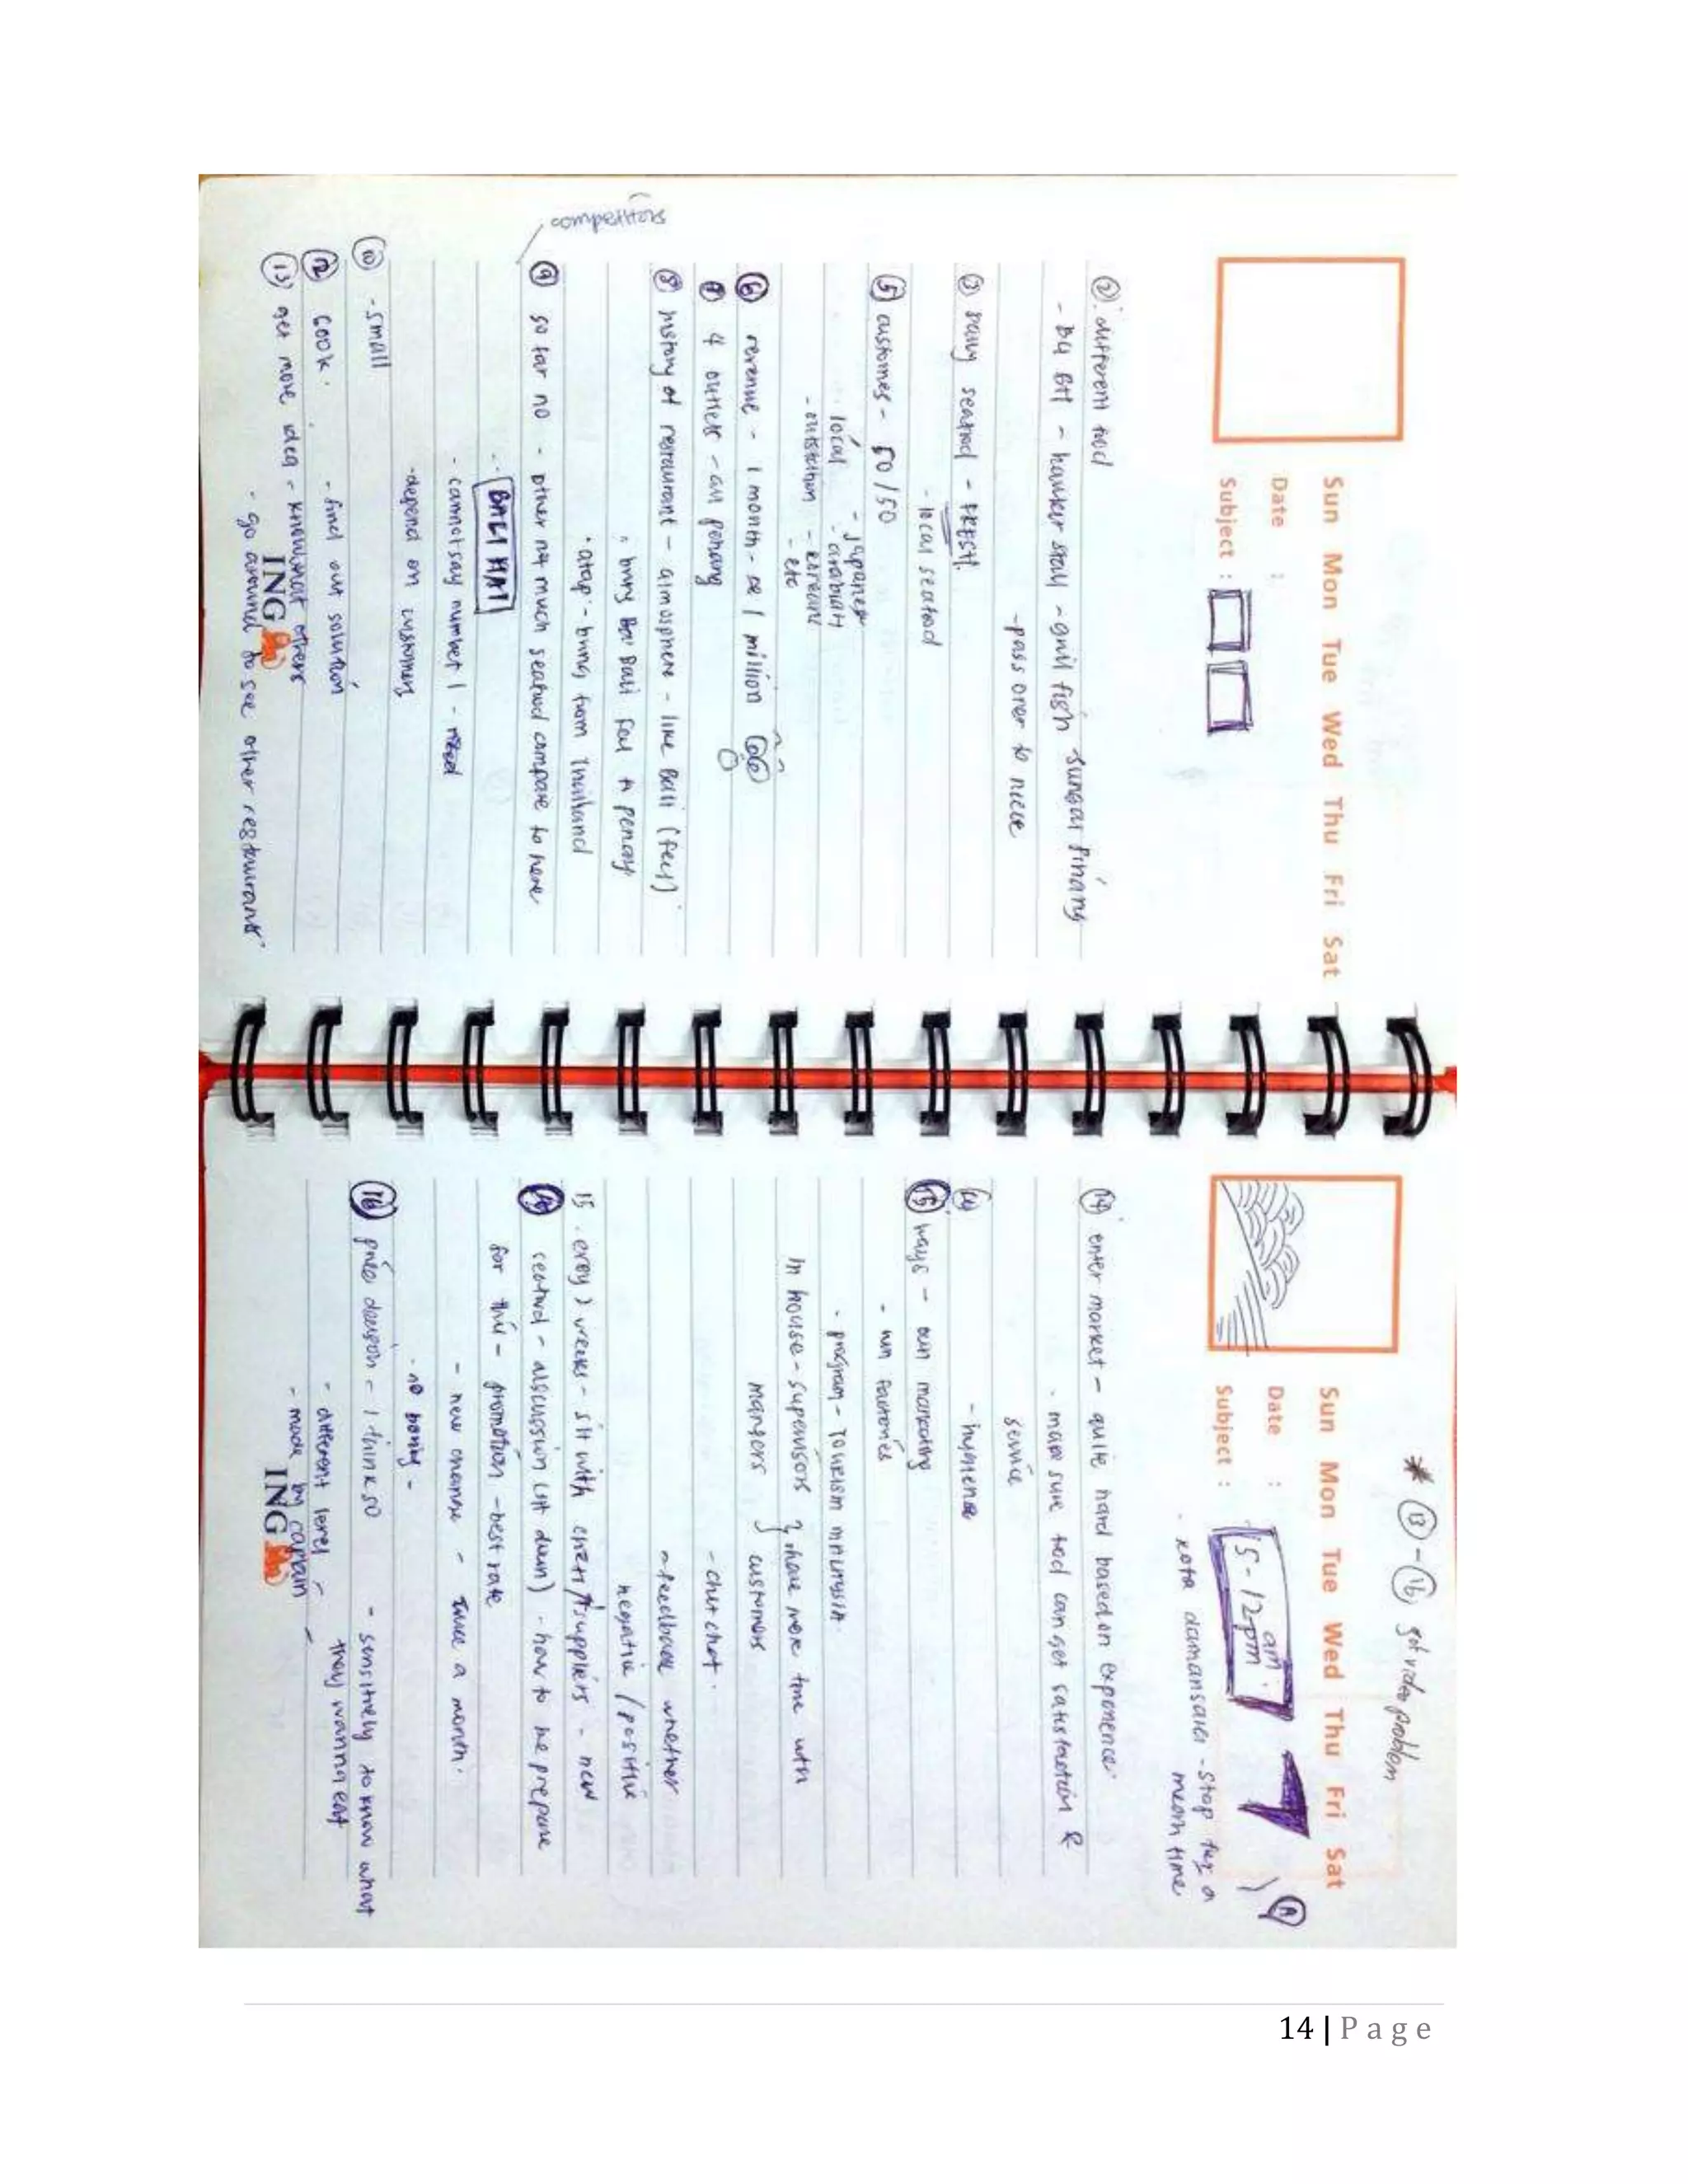 Sun Mon Tue Wed Thu Fri Sat
Date :
Subject :
② different food
- B4 BH - hawker stall - grill fish Sungai Pinang
- pass over to niece
③ seafood - FRESH
- local seafood
⑤ customers - 50/50
local - Japanese
- arabian
- outstation - korean
- etc
⑥ revenue - 1 month - 1 million
4 outlets - all penang
⑧ history of restaurant - atmosphere - like Bali (feel)
bring Bali feel to penang
- bring from Thailand
competitors
⑨ so far no - other not much seafood compare to here
BALI HAI
- cannot say number 1 -
- depend on customers
⑩ - small
⑫ 600k. - find out solution
⑬ get more idea - know what others
- go around to see other restaurants
ING
* ⑬ - ⑯ got video problem
Sun Mon Tue Wed Thu Fri Sat
Date :
Subject :
5 - 12pm
am
A
kota damansara - stop for a
mean time
⑭ enter market - quite hard based on experience
- make sure food can get satisfaction &
service
⑭ - hygiene
⑮ ways - own marketing
- own
- program - Tourism Malaysia
in house - supervisors } have more time with
customers
- chit chat.
- feedback whether
negative / positive
15. weeks - sit with chefs / suppliers - new
seafood - discussion (sit down) - how to prepare
for this - promotion - best rate
- new change - twice a month.
- no boring -
⑯ price - I think so - sensitively to know what
they wanna eat
- different level -
- made by captain
ING
14 | Page